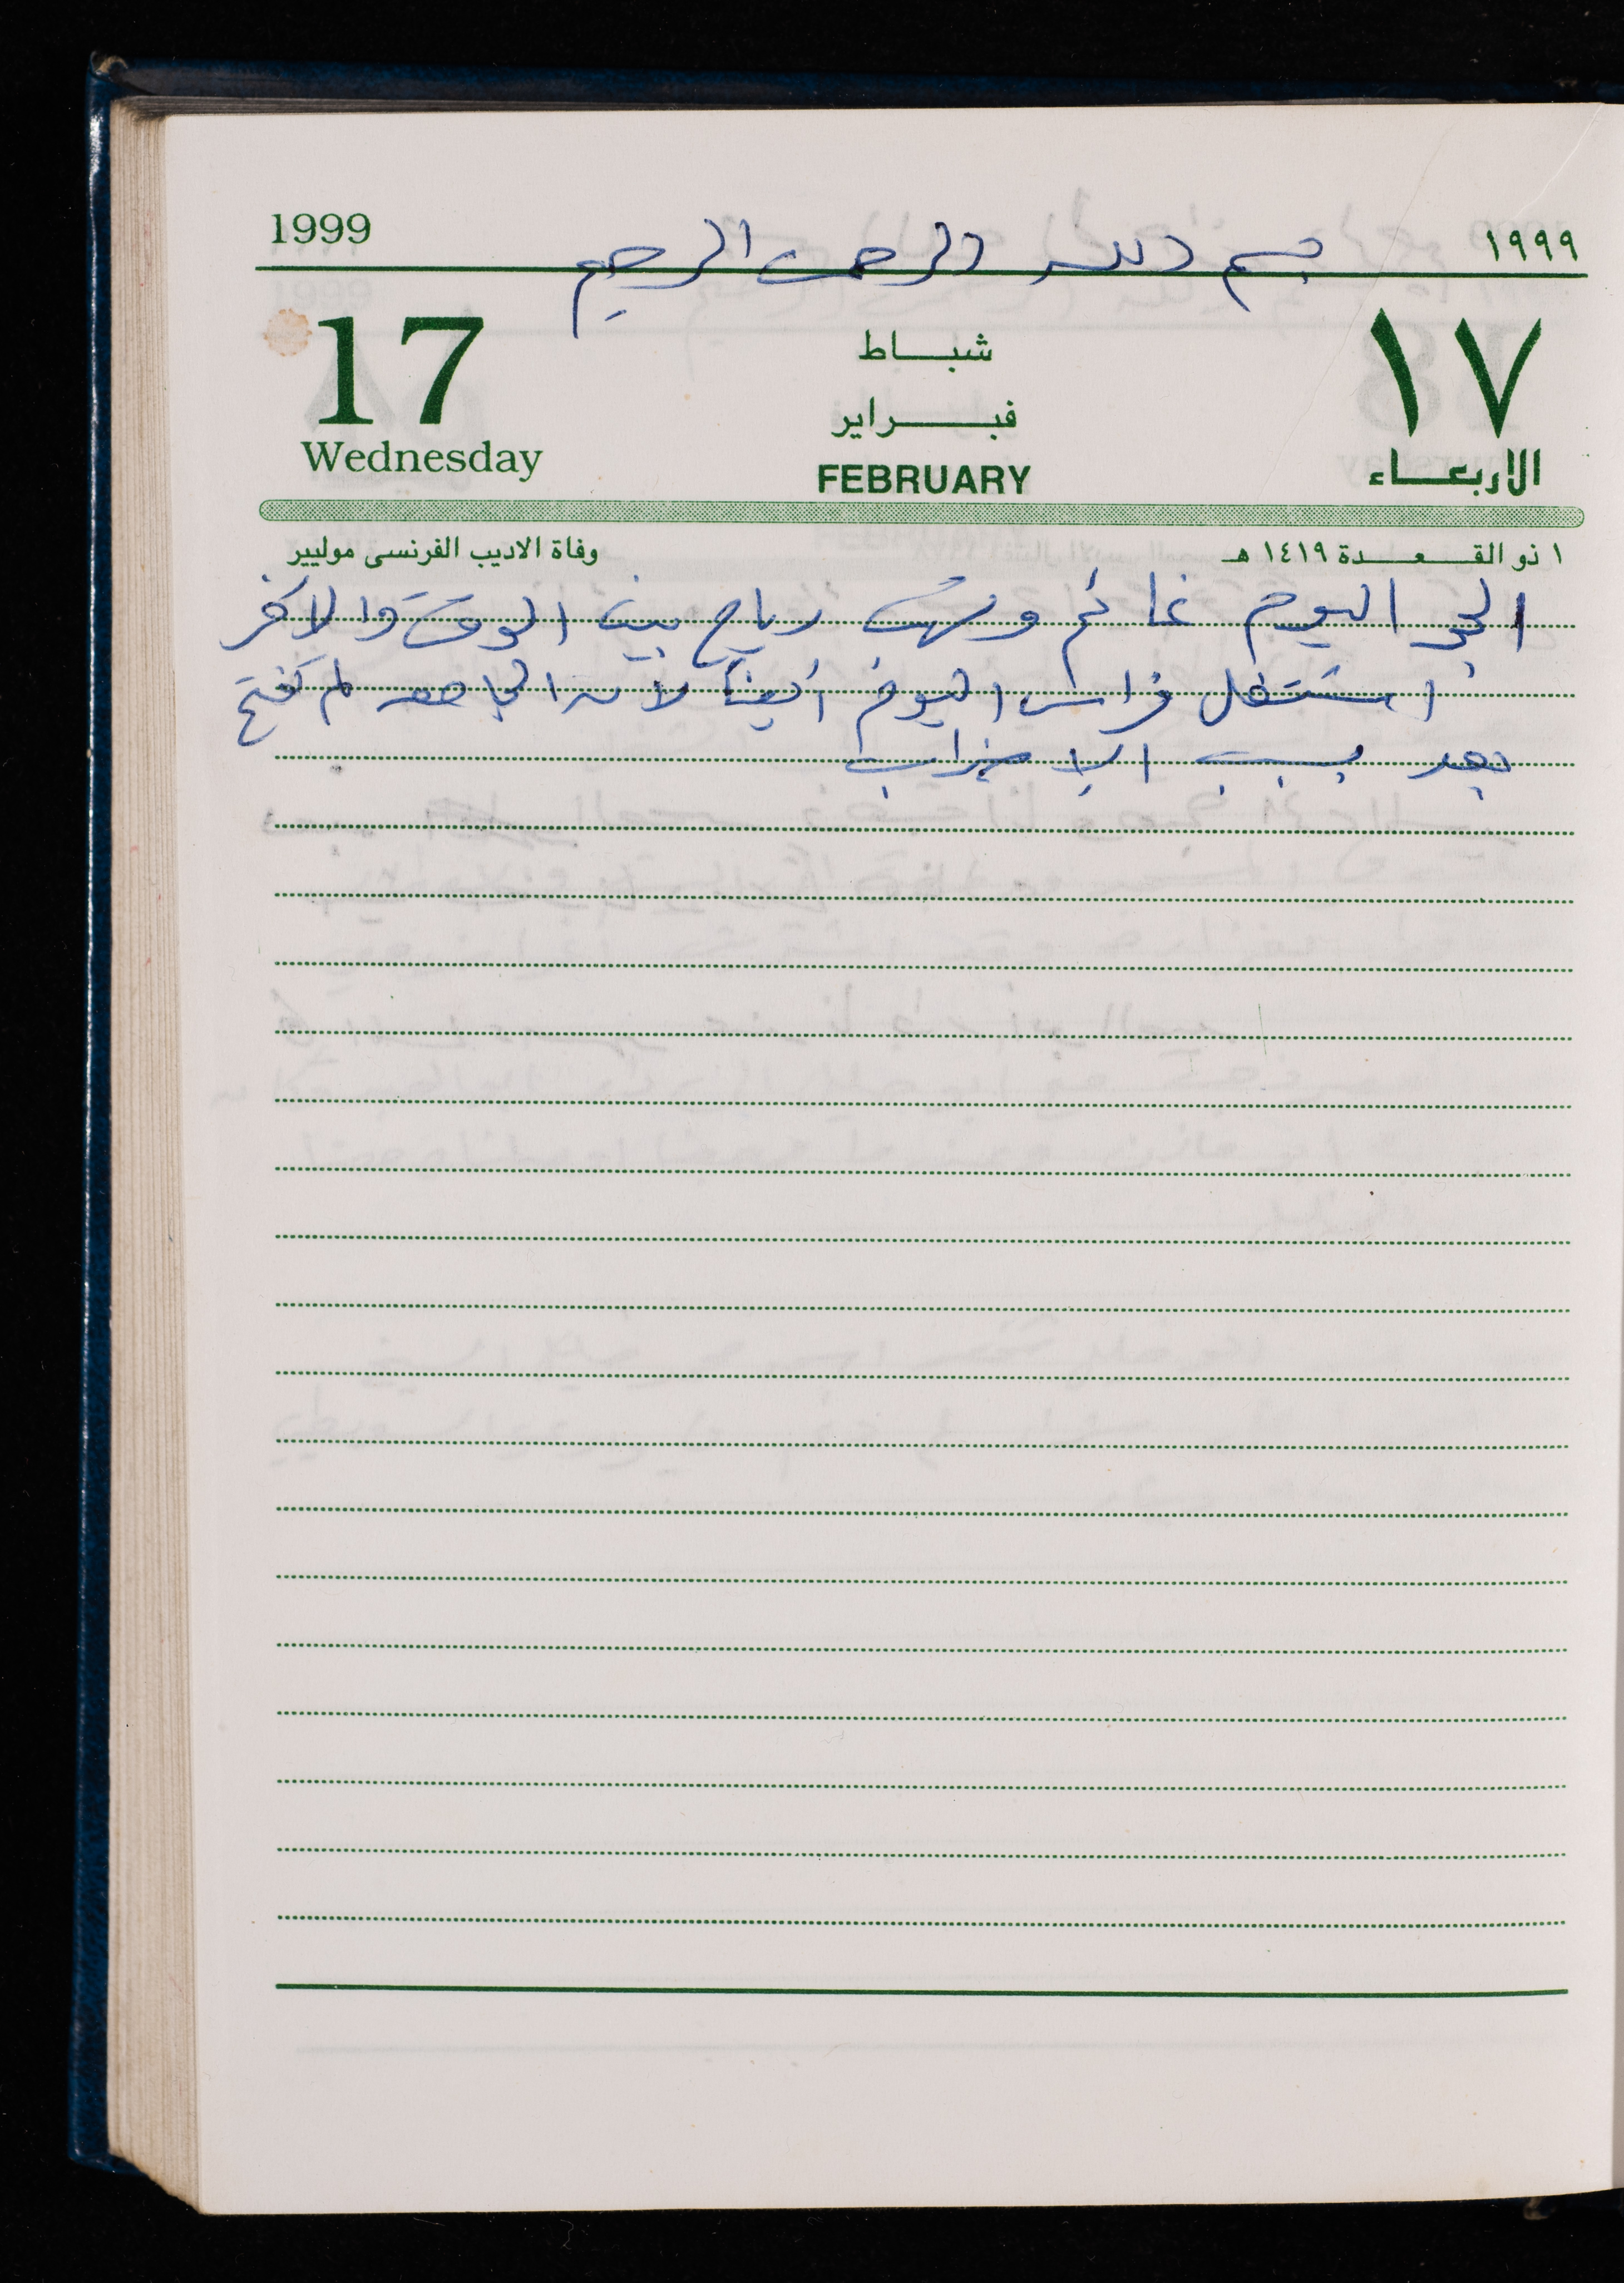 1999 بسم الله الرحمن الرحيم ١٩٩٩
17 شباط ١٧
فبراير
Wednesday FEBRUARY الاربعاء
١ ذو القعدة ١٤١٩ هـ وفاة الاديب الفرنسى موليير
الجو اليوم غائم وتهب رياح بين الوقت والاخر
اشتغل فراس اليوم أيضاً لان الجامعه لم تفتح
بعد بسبب الإضراب